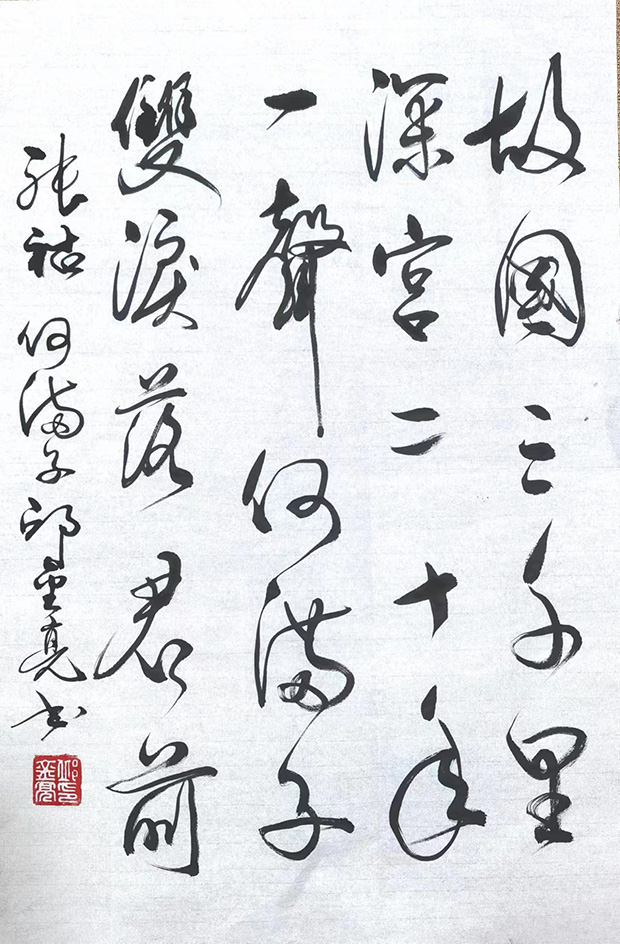 故國三千里
深宮二十年
一聲何滿子
雙淚落君前
張祜 何滿子 邱亮书